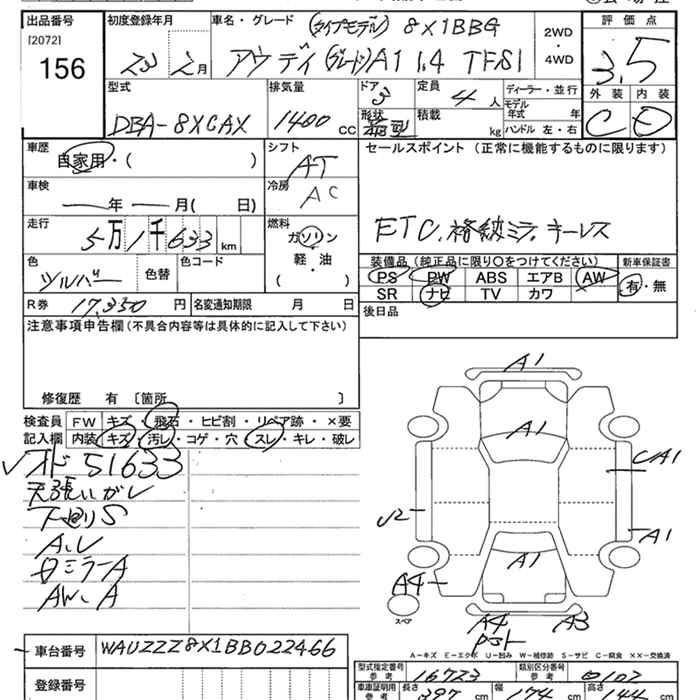 出品番号
[2072]
156
初度登録年月
23 2月
車名・グレード (タイプモデル) 8X1BBG
アウディ (グレード) A1 1.4 TFSI
2WD
・
4WD
評価点
3.5
外装 内装
C D
型式
DBA-8XCAX
排気量
1400 CC
ドア
3
形状
箱型
定員
4 人
積載
kg
ディーラー・並行
モデル年式 年
ハンドル 左・右
車歴
自家用・( )
シフト
AT
車検
年 月( 日)
冷房
AC
走行
5万1千633 km
燃料
ガソリン
軽・油
( )
セールスポイント (正常に機能するものに限ります)
ETC. 格納ミラ. キーレス
色
シルバー
色替
色コード
装備品 (純正品に限り○をつけてください)
PS PW ABS エアB AW
SR ナビ TV カワ
新車保証書
有・無
R券 17,350 円
名変通知期限 月 日
後日品
注意事項申告欄 (不具合内容等は具体的に記入して下さい)
修復歴 有 〔箇所 〕
検査員
記入欄
FW キズ・飛石・ヒビ割・リペア跡・×要
内装 キズ・汚レ・コゲ・穴・スレ・キレ・破レ
オド 51633
天張りいがレ
下廻りS
A.U
ミラーA
AW.A
A1
A1
CA1
U2
A1
A1
A4
スペア
A4
A3
A-キズ E-エクボ U-凹み W-補修跡 S-サビ C-腐食 XX-交換済
車台番号 WAUZZZ8X1BB022466
登録番号
型式指定番号
参考
16723
類別区分番号
参考
0102
車庫証明用
参考
長さ 397 cm
幅 174 cm
高さ 144 cm